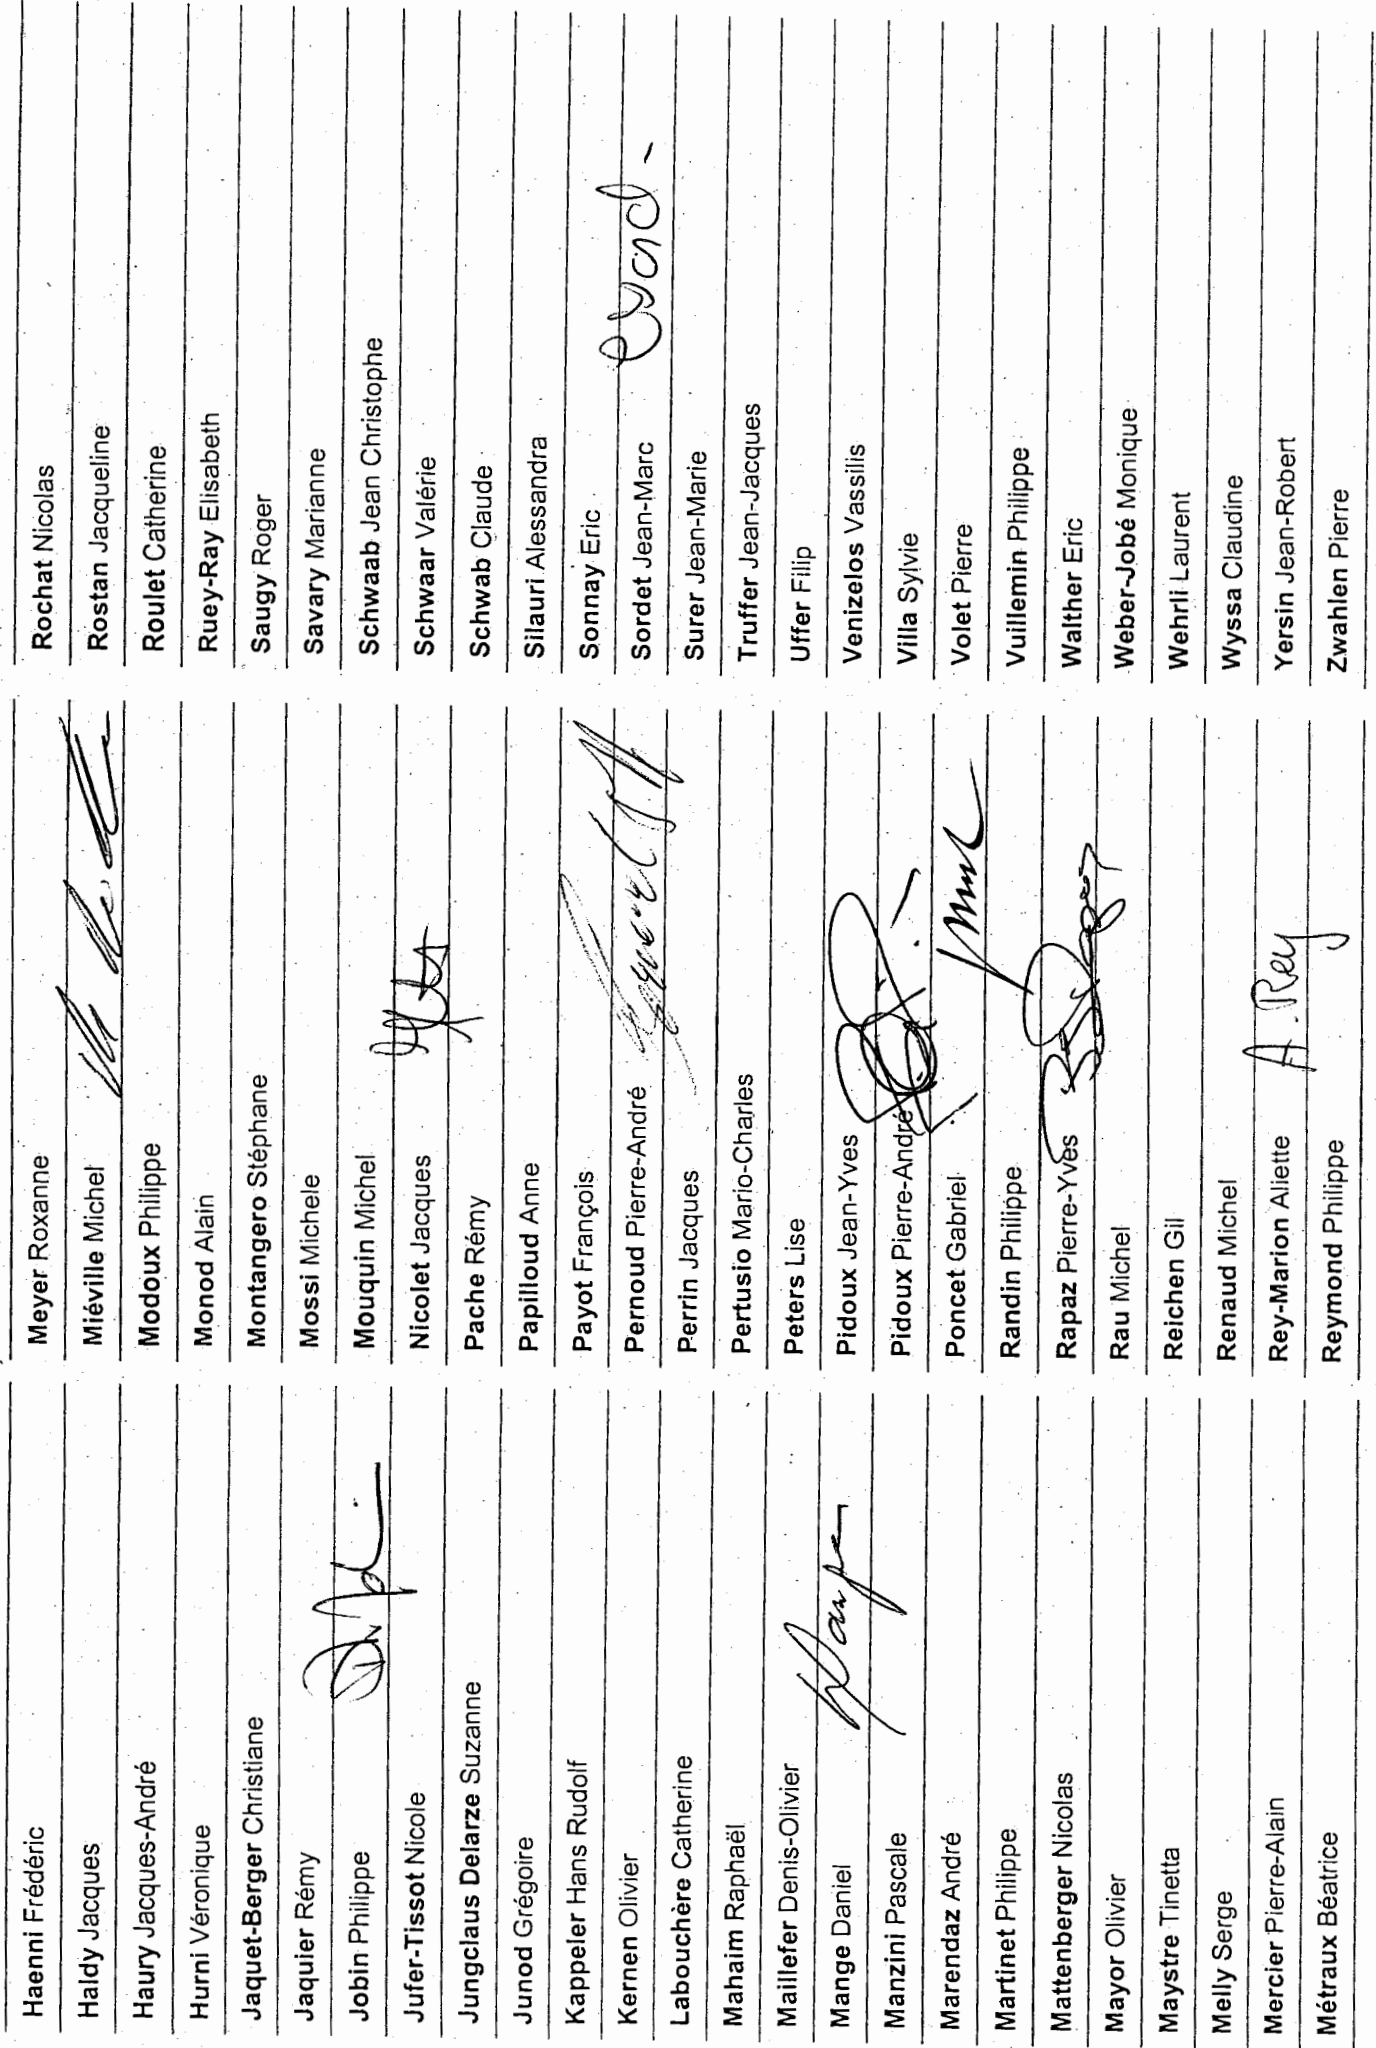 Haenni Frédéric
Haldy Jacques
Haury Jacques-André
Hurni Véronique
Jaquet-Berger Christiane
Jaquier Rémy
Jobin Philippe
Jufer-Tissot Nicole
Jungclaus Delarze Suzanne
Junod Grégoire
Kappeler Hans Rudolf
Kernen Olivier
Labouchère Catherine
Mahaim Raphaël
Maillefer Denis-Olivier
Mange Daniel
Manzini Pascale
Marendaz André
Martinet Philippe
Mattenberger Nicolas
Mayor Olivier
Maystre Tinetta
Melly Serge
Mercier Pierre-Alain
Métraux Béatrice
Meyer Roxanne
Miéville Michel
Modoux Philippe
Monod Alain
Montangero Stéphane
Mossi Michele
Mouquin Michel
Nicolet Jacques
Pache Rémy
Papilloud Anne
Payot François
Pernoud Pierre-André
Perrin Jacques
Pertusio Mario-Charles
Peters Lise
Pidoux Jean-Yves
Pidoux Pierre-André
Poncet Gabriel
Randin Philippe
Rapaz Pierre-Yves
Rau Michel
Reichen Gil
Renaud Michel
Rey-Marion Aliette A. Rey
Reymond Philippe
Rochat Nicolas
Rostan Jacqueline
Roulet Catherine
Ruey-Ray Elisabeth
Saugy Roger
Savary Marianne
Schwaab Jean Christophe
Schwaar Valérie
Schwab Claude
Silauri Alessandra
Sonnay Eric
Sordet Jean-Marc
Surer Jean-Marie
Truffer Jean-Jacques
Uffer Filip
Venizelos Vassilis
Villa Sylvie
Volet Pierre
Vuillemin Philippe
Walther Eric
Weber-Jobé Monique
Wehrli Laurent
Wyssa Claudine
Yersin Jean-Robert
Zwahlen Pierre